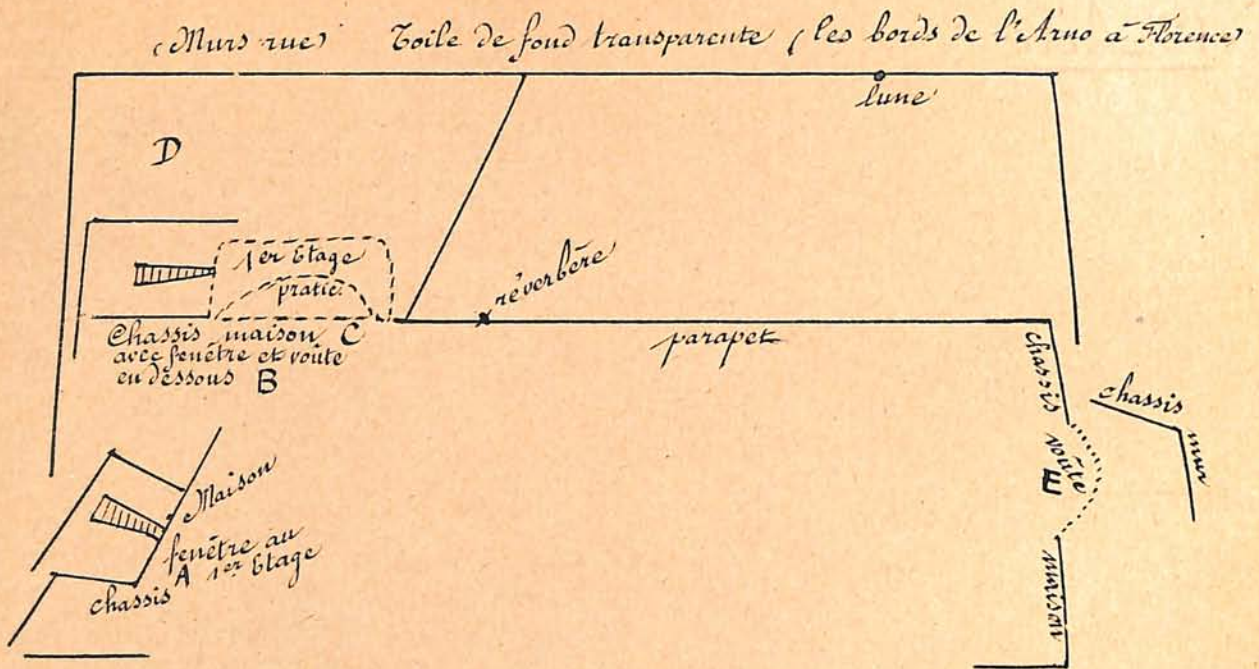 (Murs rue) Toile de fond transparente (les bords de l'Arno à Florence)
lune
D
1er Etage
pratic.
réverbère
Chassis maison C
avec fenêtre et voute
en dessous B
parapet
chassis
voûte
E
maison
chassis
mur
Maison
fenêtre au
A 1er Etage
chassis